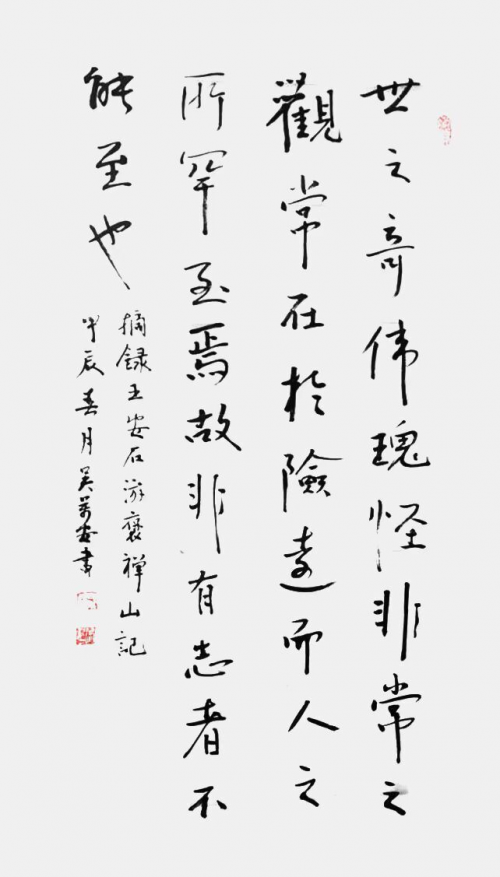 世之奇伟瑰怪非常之
觀常在於險遠而人之
所罕至焉故非有志者不
能至也
摘録王安石游褒禅山記
甲辰春月吴安書